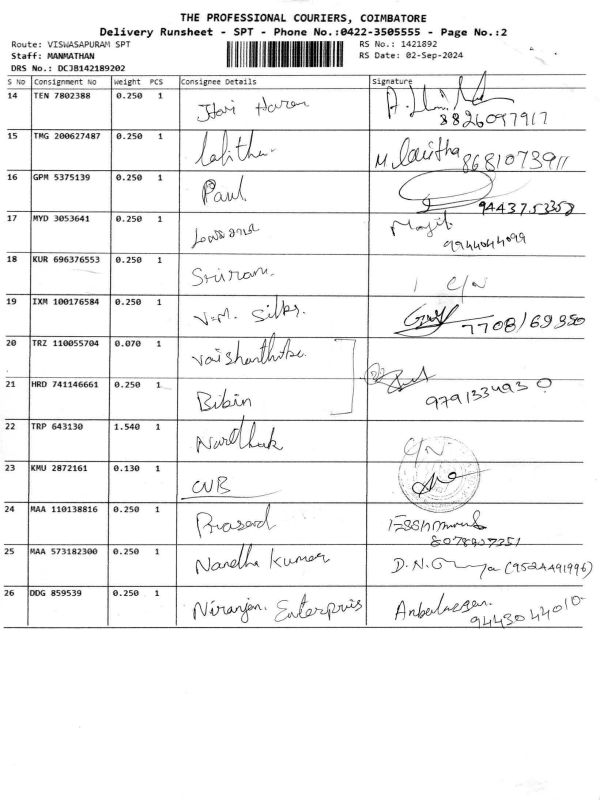 THE PROFESSIONAL COURIERS, COIMBATORE
Delivery Runsheet - SPT - Phone No.:0422-3505555 - Page No.:2
Route: VISWASAPURAM SPT RS No.: 1421892
Staff: MANMATHAN RS Date: 02-Sep-2024
DRS No.: DCJB142189202
S No Consignment No Weight PCS Consignee Details Signature
14 TEN 7802388 0.250 1 Hari Haran
8826097917
15 TMG 200627487 0.250 1 Lalitha M. Lalitha 8681073911
16 GPM 5375139 0.250 1 Paul 9443753358
17 MYD 3053641 0.250 1 Majib
9944044099
18 KUR 696376553 0.250 1 Sriram. C/N
19 IXM 100176584 0.250 1 V.M. Silks. 7708169350
20 TRZ 110055704 0.070 1
21 HRD 741146661 0.250 1 Bibin 9791334930
22 TRP 643130 1.540 1 C/N.
23 KMU 2872161 0.130 1 CUB
24 MAA 110138816 0.250 1 Prasad
8078907351
25 MAA 573182300 0.250 1 Nandha Kumar D.N. (9524491996)
26 DDG 859539 0.250 1 Niranjan. Enterpris Anbalagan.
9443044010